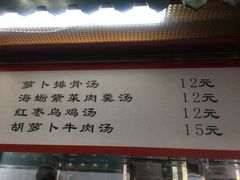 萝卜排骨汤 12元
海蛎紫菜肉羹汤 12元
红枣乌鸡汤 12元
胡萝卜牛肉汤 15元